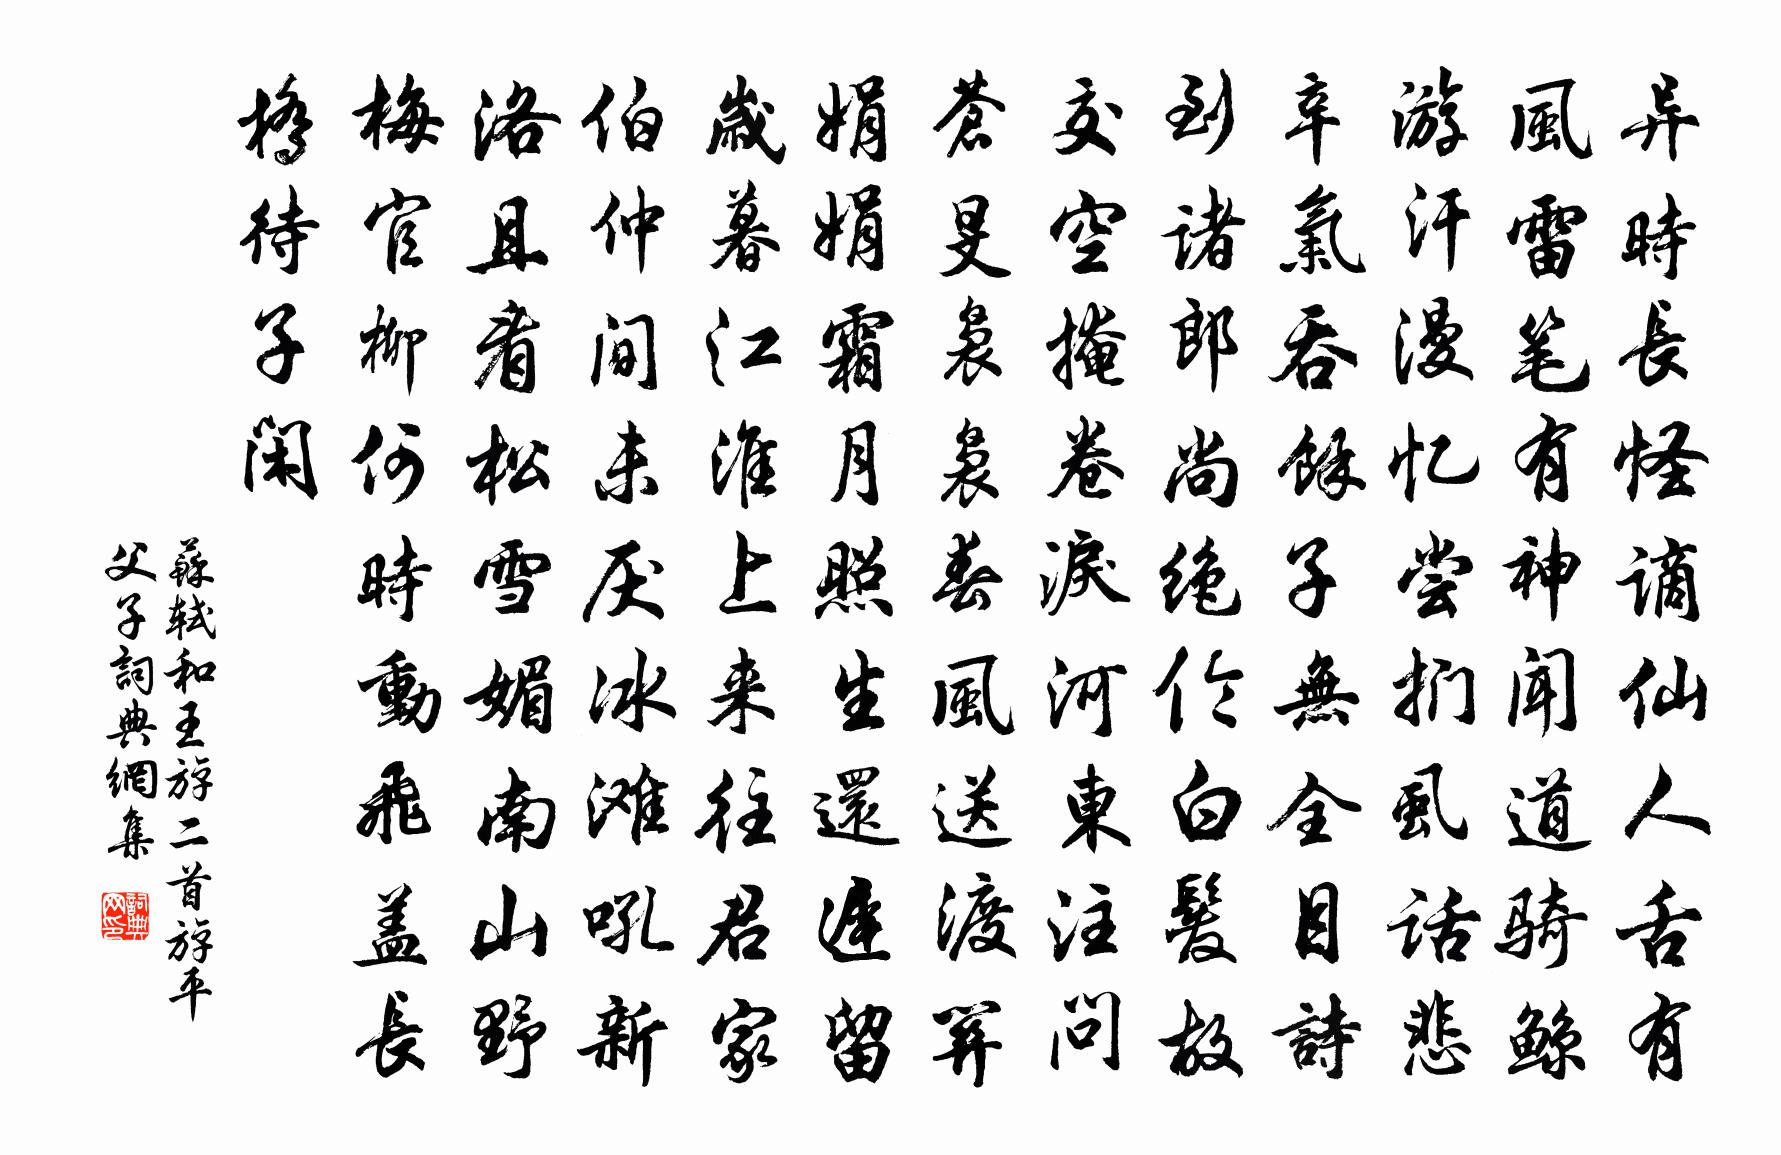 异時長怪謫仙人舌有
風雷笔有神聞道骑鲸
游汗漫忆尝捫虱話悲
辛氣吞餘子無全目詩
到诸郎尚绝伦白髮故
交空掩卷淚河東注问
苍旻袅袅春風送渡關
娟娟霜月照生還遲留
歲暮江淮上来往君家
伯仲间未厌冰滩吼新
洛且看松雪媚南山野
梅官柳何時動飛盖長
橋待子闲
蘇轼和王斿二首斿平
父子詞典網集
詞典网印